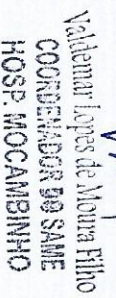 Valdemar Lopes de Moura Filho
COORDENADOR DO SAME
HOSP. MOCAMBINHO